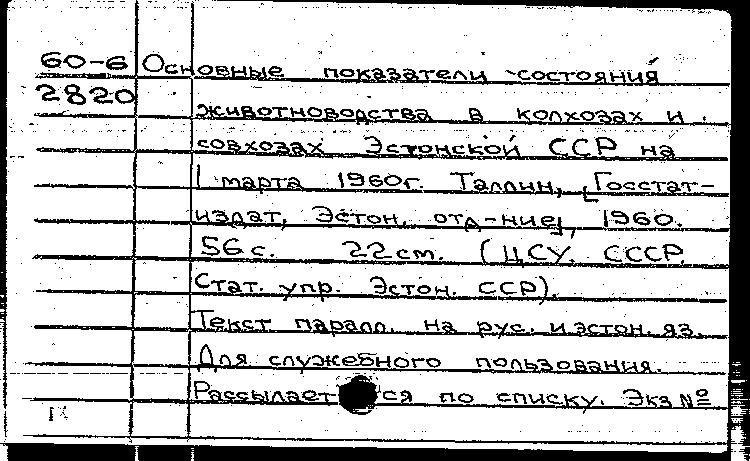 60-6 Основные показатели состояния
2820 животноводства в колхозах и
совхозах Эстонской ССР на
1 марта 1960г. Таллин, [Госстат-
издат, Эстон. отд-ние], 1960.
56 с. 22 см. (ЦСУ. СССР.
Стат. упр. Эстон. ССР).
Текст паралл. на рус. и эстон. яз.
Для служебного пользования.
Рассылается по списку. Экз №